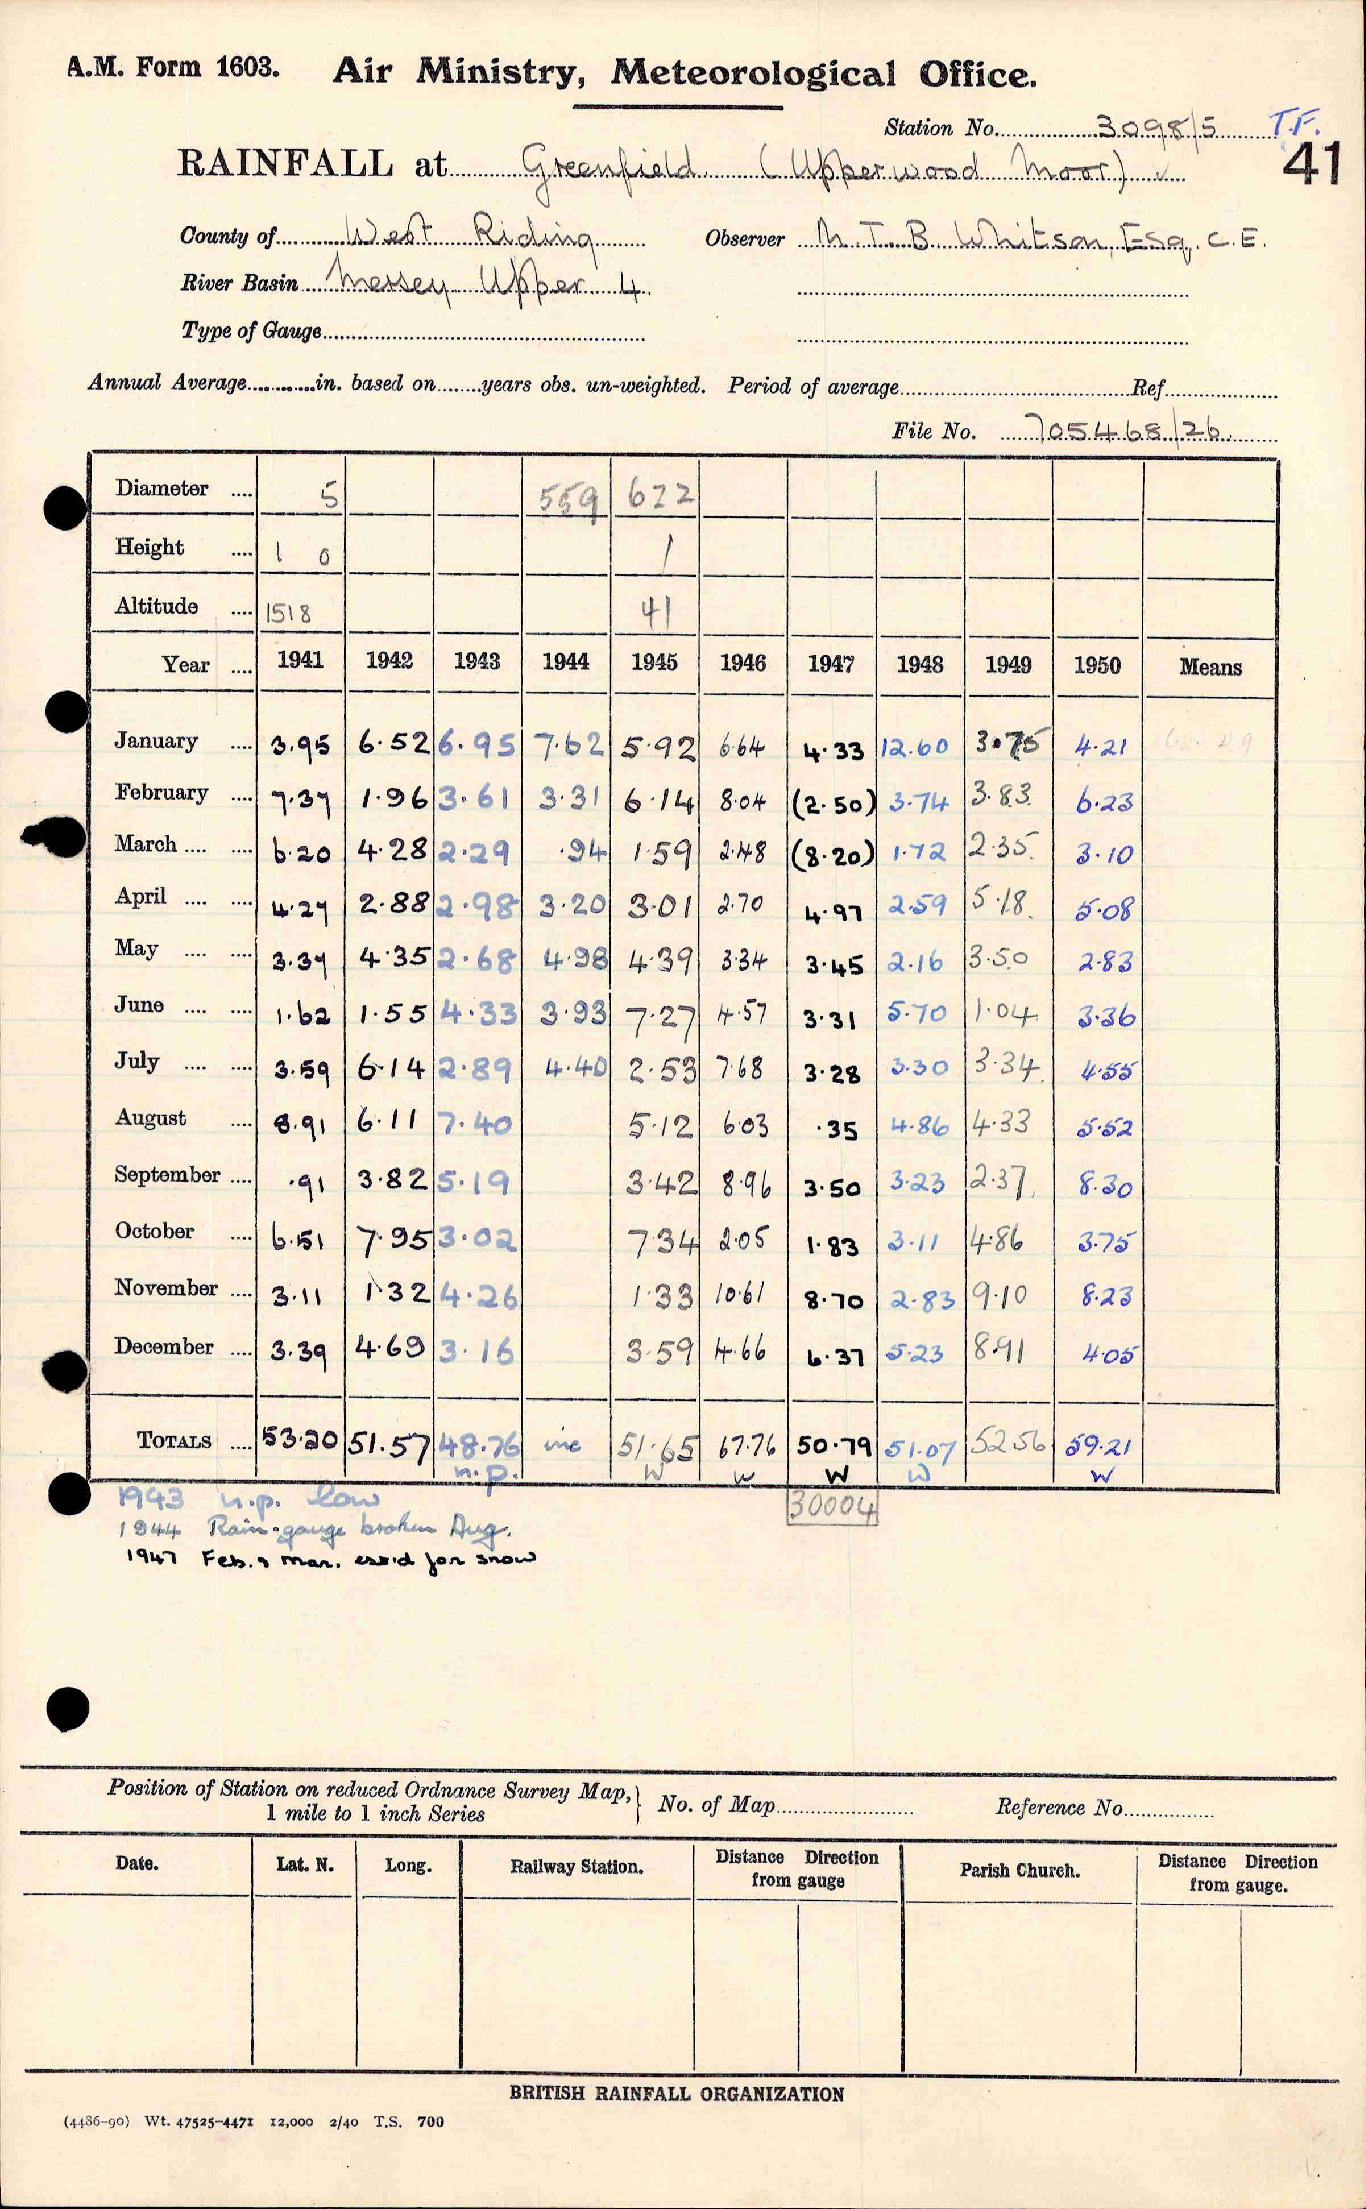 A.M. Form 1603. Air Ministry, Meteorological Office.
Station No. 3098/5 T.F.
41
RAINFALL at Greenfield (Upperwood Moor) ✓
County of West Riding Observer M. T. B. Whitson, Esq. C.E.
River Basin Mersey Upper 4
Type of Gauge
Annual Average in. based on years obs. un-weighted. Period of average Ref
File No. 705468/26
Diameter .... 5 559 622
Height .... 1 0 1
Altitude .... 1518 41
Year .... 1941 1942 1943 1944 1945 1946 1947 1948 1949 1950 Means
January .... 3.95 6.52 6.95 7.62 5.92 6.64 4.33 12.60 3.75 4.21
February .... 7.37 1.96 3.61 3.31 6.14 8.04 (2.50) 3.74 3.83 6.23
March .... .... 6.20 4.28 2.29 .94 1.59 2.48 (8.20) 1.72 2.35 3.10
April .... .... 4.27 2.88 2.98 3.20 3.01 2.70 4.97 2.59 5.18 5.08
May .... .... 3.37 4.35 2.68 4.98 4.39 3.34 3.45 2.16 3.50 2.83
June .... .... 1.62 1.55 4.33 3.93 7.27 4.57 3.31 5.70 1.04 3.36
July .... .... 3.59 6.14 2.89 4.40 2.53 7.68 3.28 3.30 3.34 4.55
August .... 8.91 6.11 7.40 5.12 6.03 .35 4.86 4.33 5.52
September .... .91 3.82 5.19 3.42 8.96 3.50 3.23 2.37 8.30
October .... 6.51 7.95 3.02 7.34 2.05 1.83 3.11 4.86 3.75
November .... 3.11 1.32 4.26 1.33 10.61 8.70 2.83 9.10 8.23
December .... 3.39 4.69 3.16 3.59 4.66 6.37 5.23 8.91 4.05
TOTALS .... 53.20 51.57 48.76 inc 51.65 67.76 50.79 51.07 52.56 59.21
n.p. W W W W W
30004
1943 n.p. low
1944 Rain-gauge broken Aug.
1947 Feb. & Mar. est'd for snow
Position of Station on reduced Ordnance Survey Map,
1 mile to 1 inch Series
No. of Map Reference No.
Date. Lat. N. Long. Railway Station. Distance Direction from gauge Parish Church. Distance Direction from gauge.
BRITISH RAINFALL ORGANIZATION
(4486-90) Wt. 47525-4471 12,000 2/40 T.S. 700